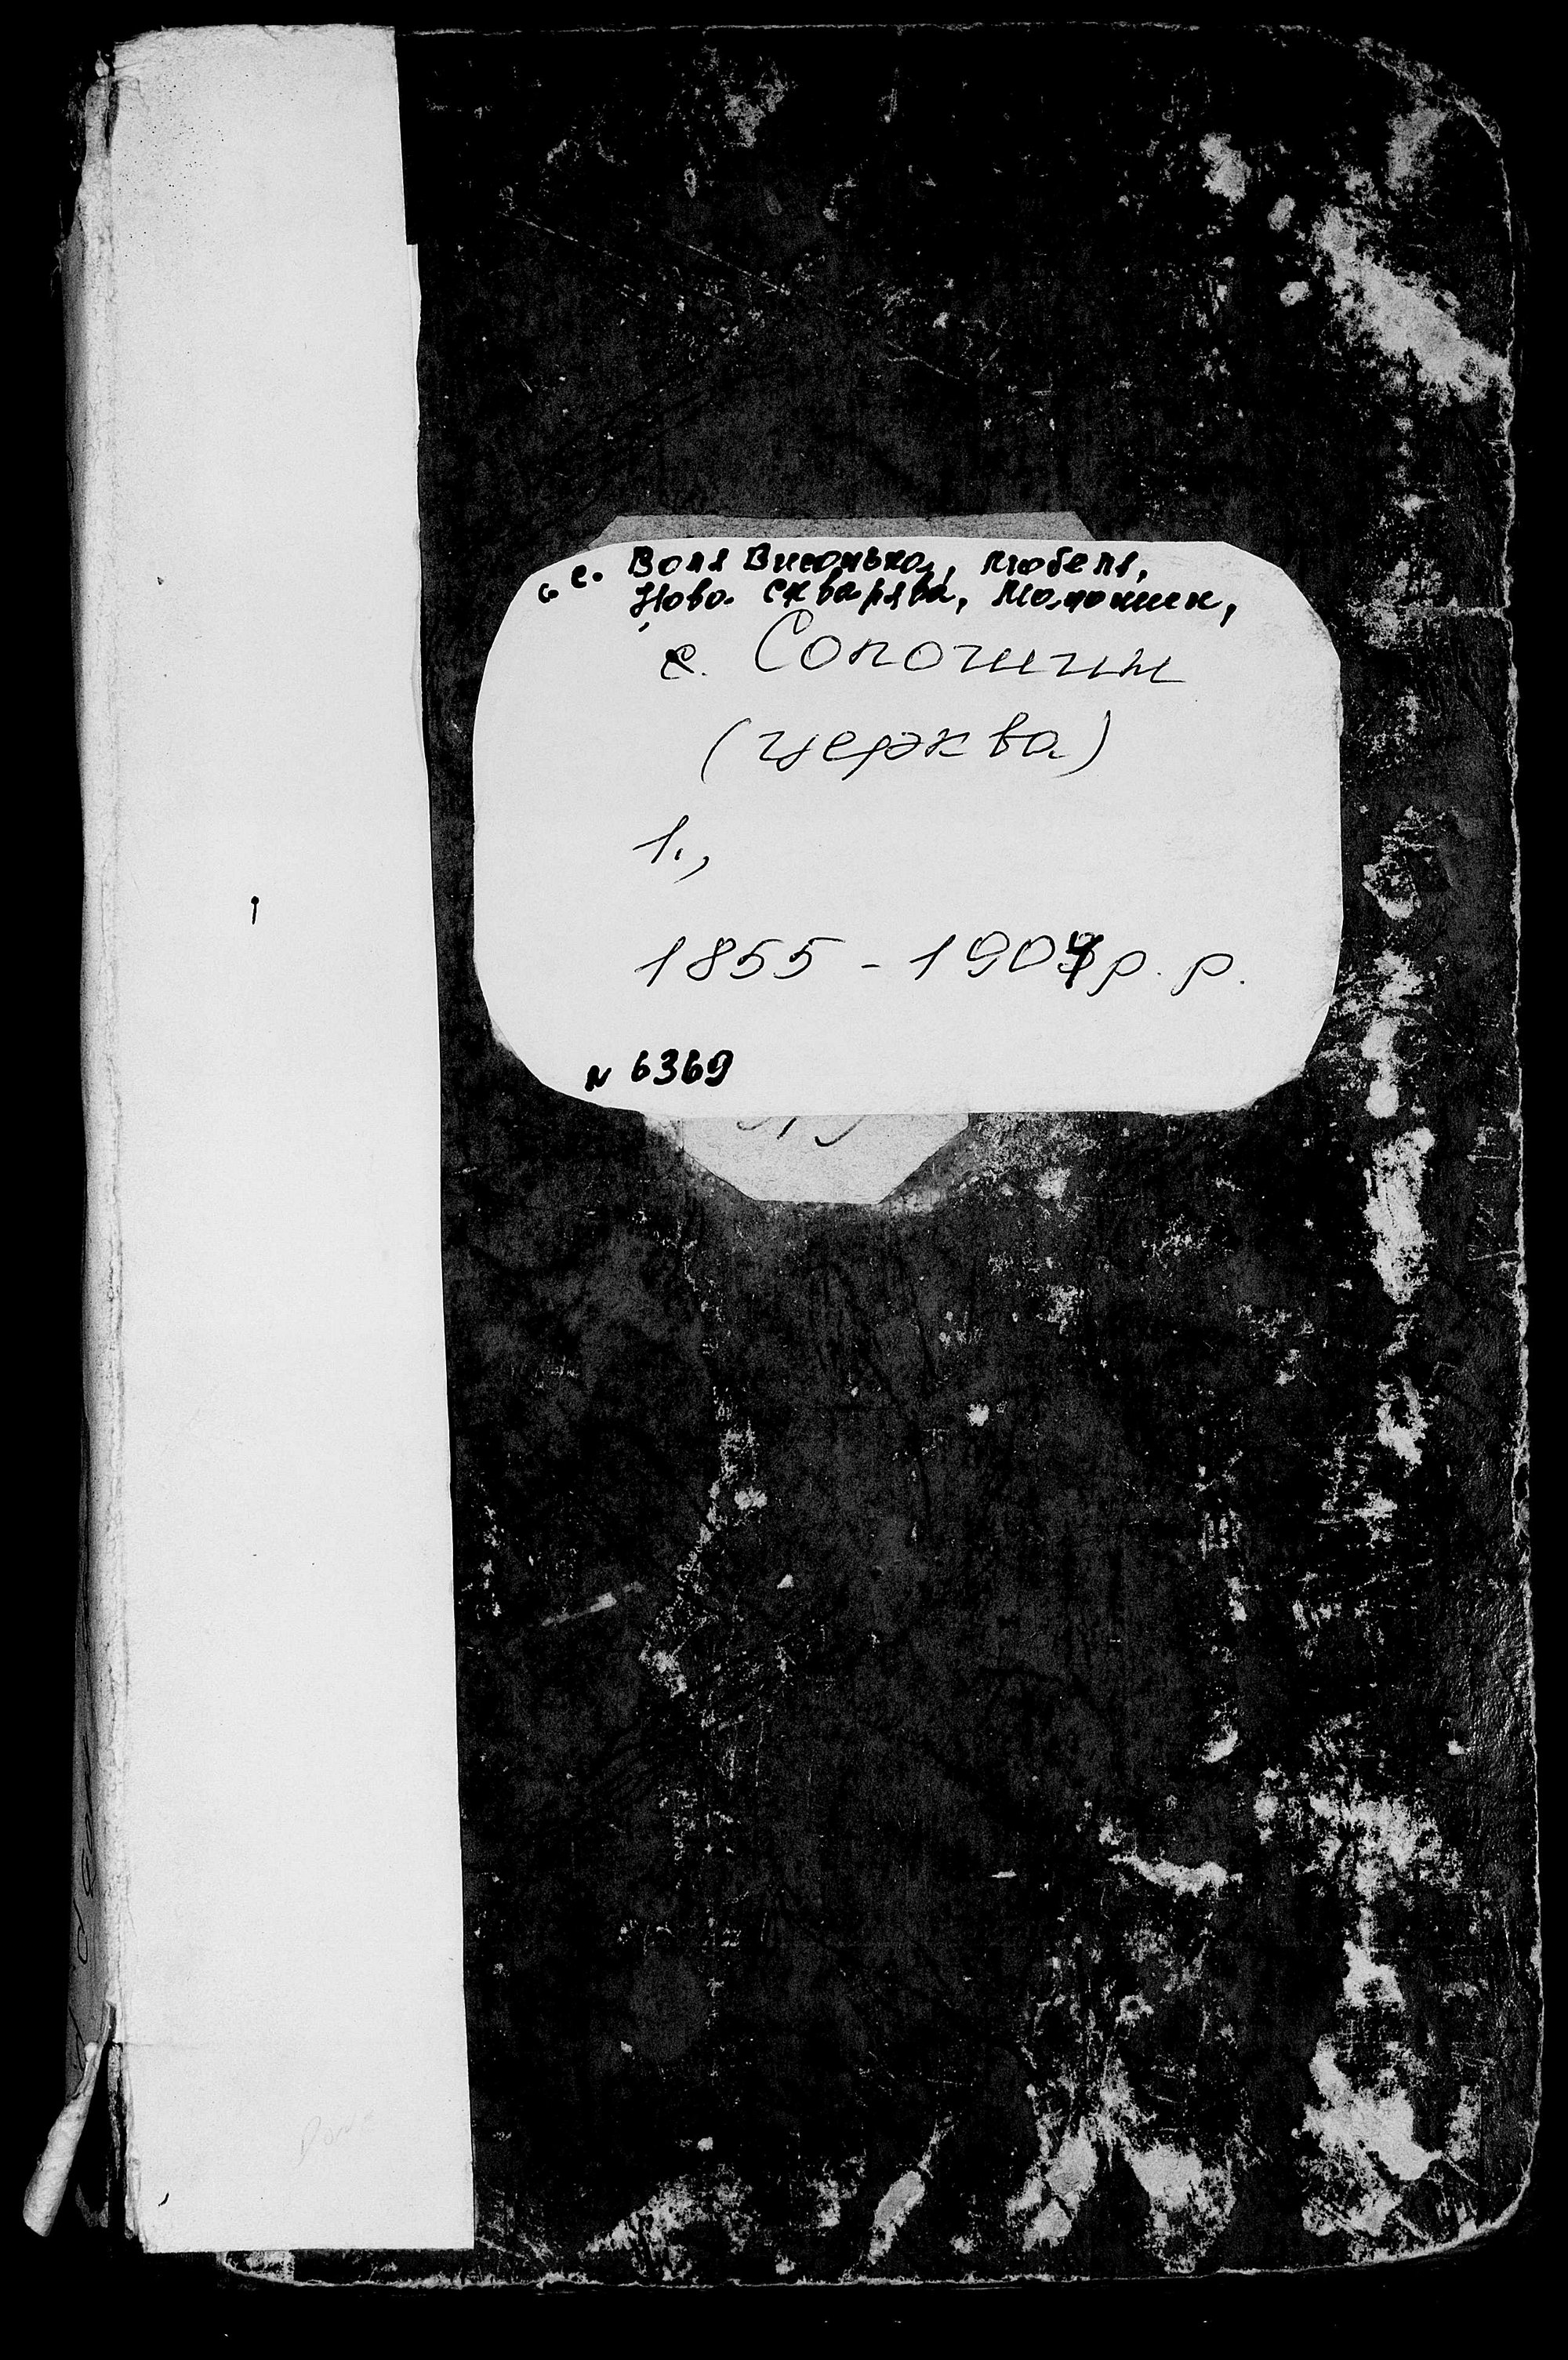 с. с. Воля Висоцька, Любеля,
Нова Скварява, Мацошин,
с. Сопошин
(церква)
1.,
1855 - 1904 р. р.
N 6369